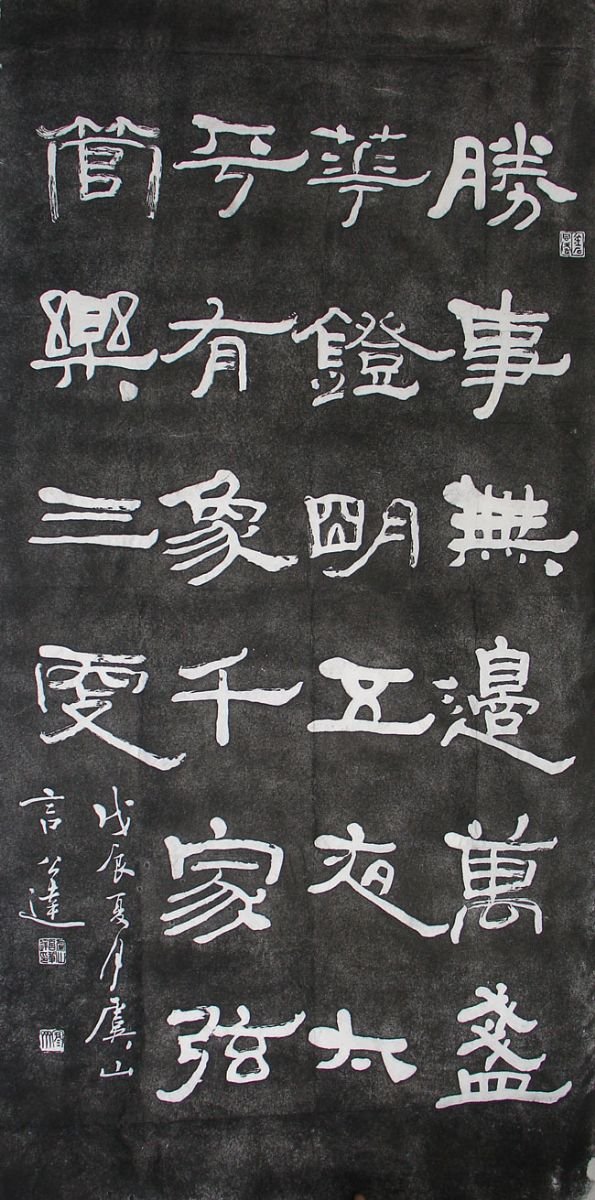 勝事無邊萬盞
華鐙朙五夜太
平有象千家弦
管樂三更
戊辰夏月虞山
言公達